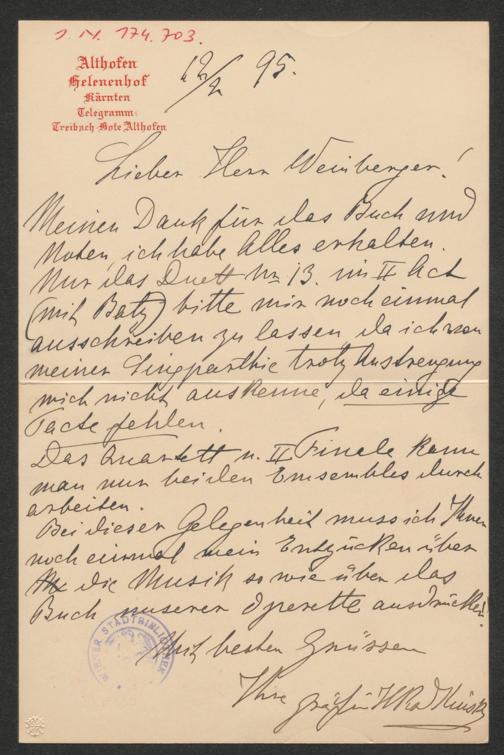 I. N. 174.703.
Althofen
Helenenhof
Kärnten
Telegramm:
Treibach-Bote Althofen
12/2 95.
Lieber Herr Weinberger!
Meinen Dank für das Buch und
Noten, ich habe Alles erhalten.
Nur das Duett No 13. im II Act
(mit Baty) bitte mir noch einmal
ausschreiben zu lassen da ich von
meiner Singparthie trotz Anstrengung
mich nicht auskenne, da einige
Tacte fehlen.
Das Quartett u. II Finale kann
man nur bei den Ensembles durch
arbeiten.
Bei dieser Gelegenheit muss ich Ihnen
noch einmal mein Entzücken über
die Musik so wie über das
Buch unserer Operette ausdrücken!
WIENER STADTBIBLIOTHEK
Mit besten Grüssen
Ihre
gräfin Kinsky